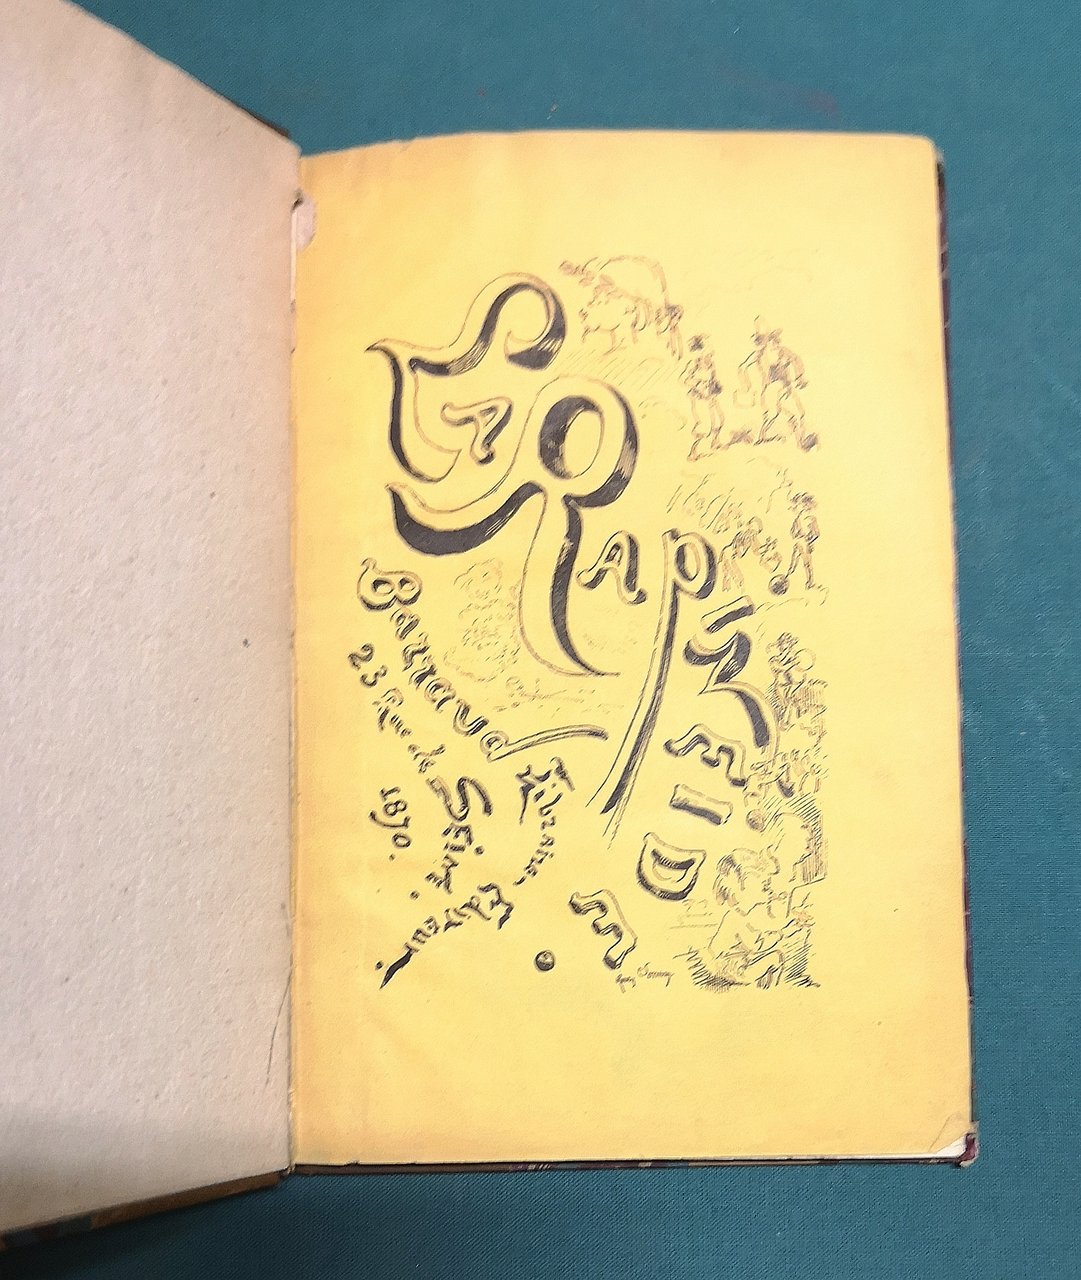 LA
RAPINÉIDE
Barraud Libraire. Editeur.
23 Rue de SEINE.
1870.